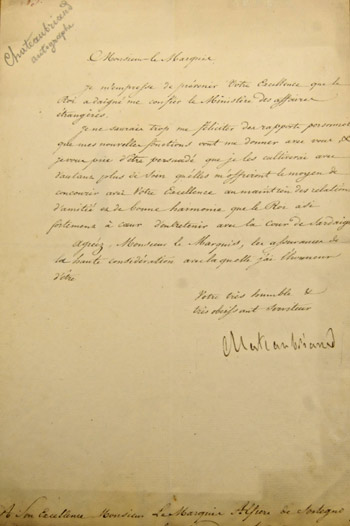 Chateaubriand
autographe
Monsieur le Marquis
je m'empresse de prévenir Votre Excellence que le
Roi a daigné me confier le Ministère des affaires
étrangères.
Je ne saurais trop me féliciter des rapports personnels
que mes nouvelles fonctions vont me donner avec vous &
je vous prie d'être persuadé que je les cultiverai avec
d'autant plus de soin qu'elles m'offriront le moyen de
concourir avec Votre Excellence au maintien des relations
d'amitié et de bonne harmonie que le Roi a si
fortement à cœur d'entretenir avec la Cour de Sardaigne
Agréez, Monsieur le Marquis, les assurances de
la haute considération avec laquelle j'ai l'honneur
d'être
Votre très humble &
très obéissant Serviteur
Chateaubriand
A Son Excellence Monsieur Le Marquis Alfieri de Sostegno